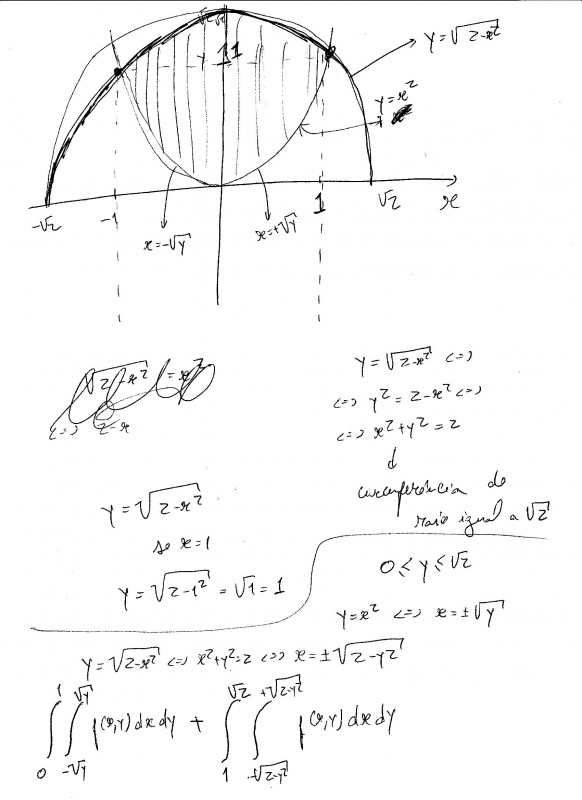 √2
1
y = √(2-x²)
y = x²
-√2
-1
1
√2
x
x = -√y
x = +√y
y = √(2-x²) <=>
<=> y² = 2-x² <=>
<=> x²+y² = 2
↓
circunferência de
raio igual a √2
y = √(2-x²)
se x=1
y = √(2-1²) = √1 = 1
0 ≤ y ≤ √2
y = x² <=> x = ±√y
y = √(2-x²) <=> x²+y²=2 <=> x = ±√(2-y²)
∫₀¹ ∫_{-√y}^{√y} f(x,y) dx dy + ∫₁^{√2} ∫_{-√(2-y²)}^{+√(2-y²)} f(x,y) dx dy